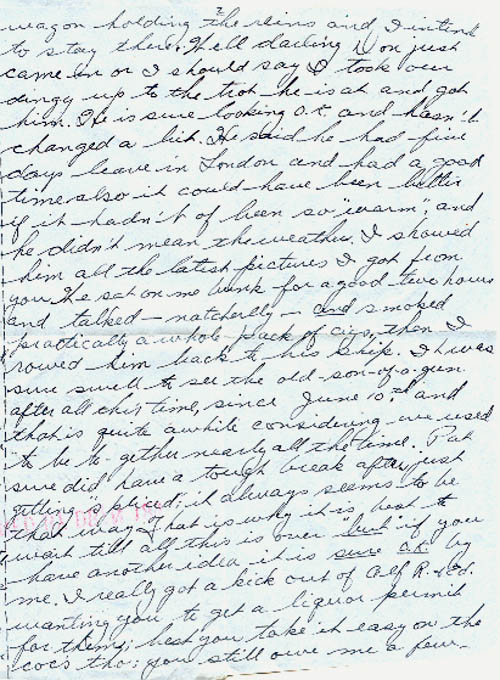 2
wagon holding the reins and I intend
to stay there. Well darling Don just
came in or I should say I took our
dingy up to the trot he is at and got
him. He is sure looking O.K. and hasn't
changed a bit. He said he had five
days leave in London and had a good
time also it could have been better
if it hadn't of been so "warm", and
he didn't mean the weather. I showed
him all the latest pictures I got from
you. He sat on me bunk for a good two hours
and talked - natcherlly - and smoked
practically a whole pack of cigs, then I
rowed him back to his ship. It was
sure swell to see the old-son-of-a-gun
after all this time, since June 10th and
that is quite awhile considering we used
to be to-gether nearly all the time. Pat
sure did have a tough break after just
getting spliced; it always seems to be
that way. That is why it is best to
wait till all this is over "but" if you
have another idea it is sure O.K. by
me. I really got a kick out of Alf R. & Ed.
wanting you to get a liquor permit
for them; best you take it easy on the
coc's tho; you still owe me a few